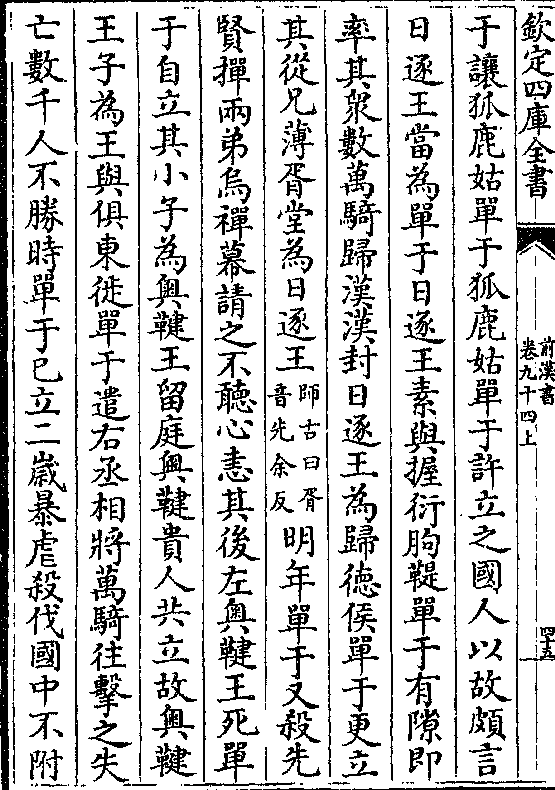 欽定四庫全書
前漢書
卷九十四上
四十五
于讓狐鹿姑單于狐鹿姑單于許立之國人以故頗言
日逐王當為單于日逐王素與握衍朐鞮單于有隙即
率其衆數萬騎歸漢漢封日逐王為歸徳侯單于更立
其從兄薄胥堂為日逐王師古曰胥音先余反明年單于又殺先
賢撣兩弟烏禪幕請之不聽心恚其後左奧鞬王死單
于自立其小子為奧鞬王留庭奧鞬貴人共立故奧鞬
王子為王與俱東徙單于遣右丞相將萬騎往擊之失
亡數千人不勝時單于已立二嵗暴虐殺伐國中不附